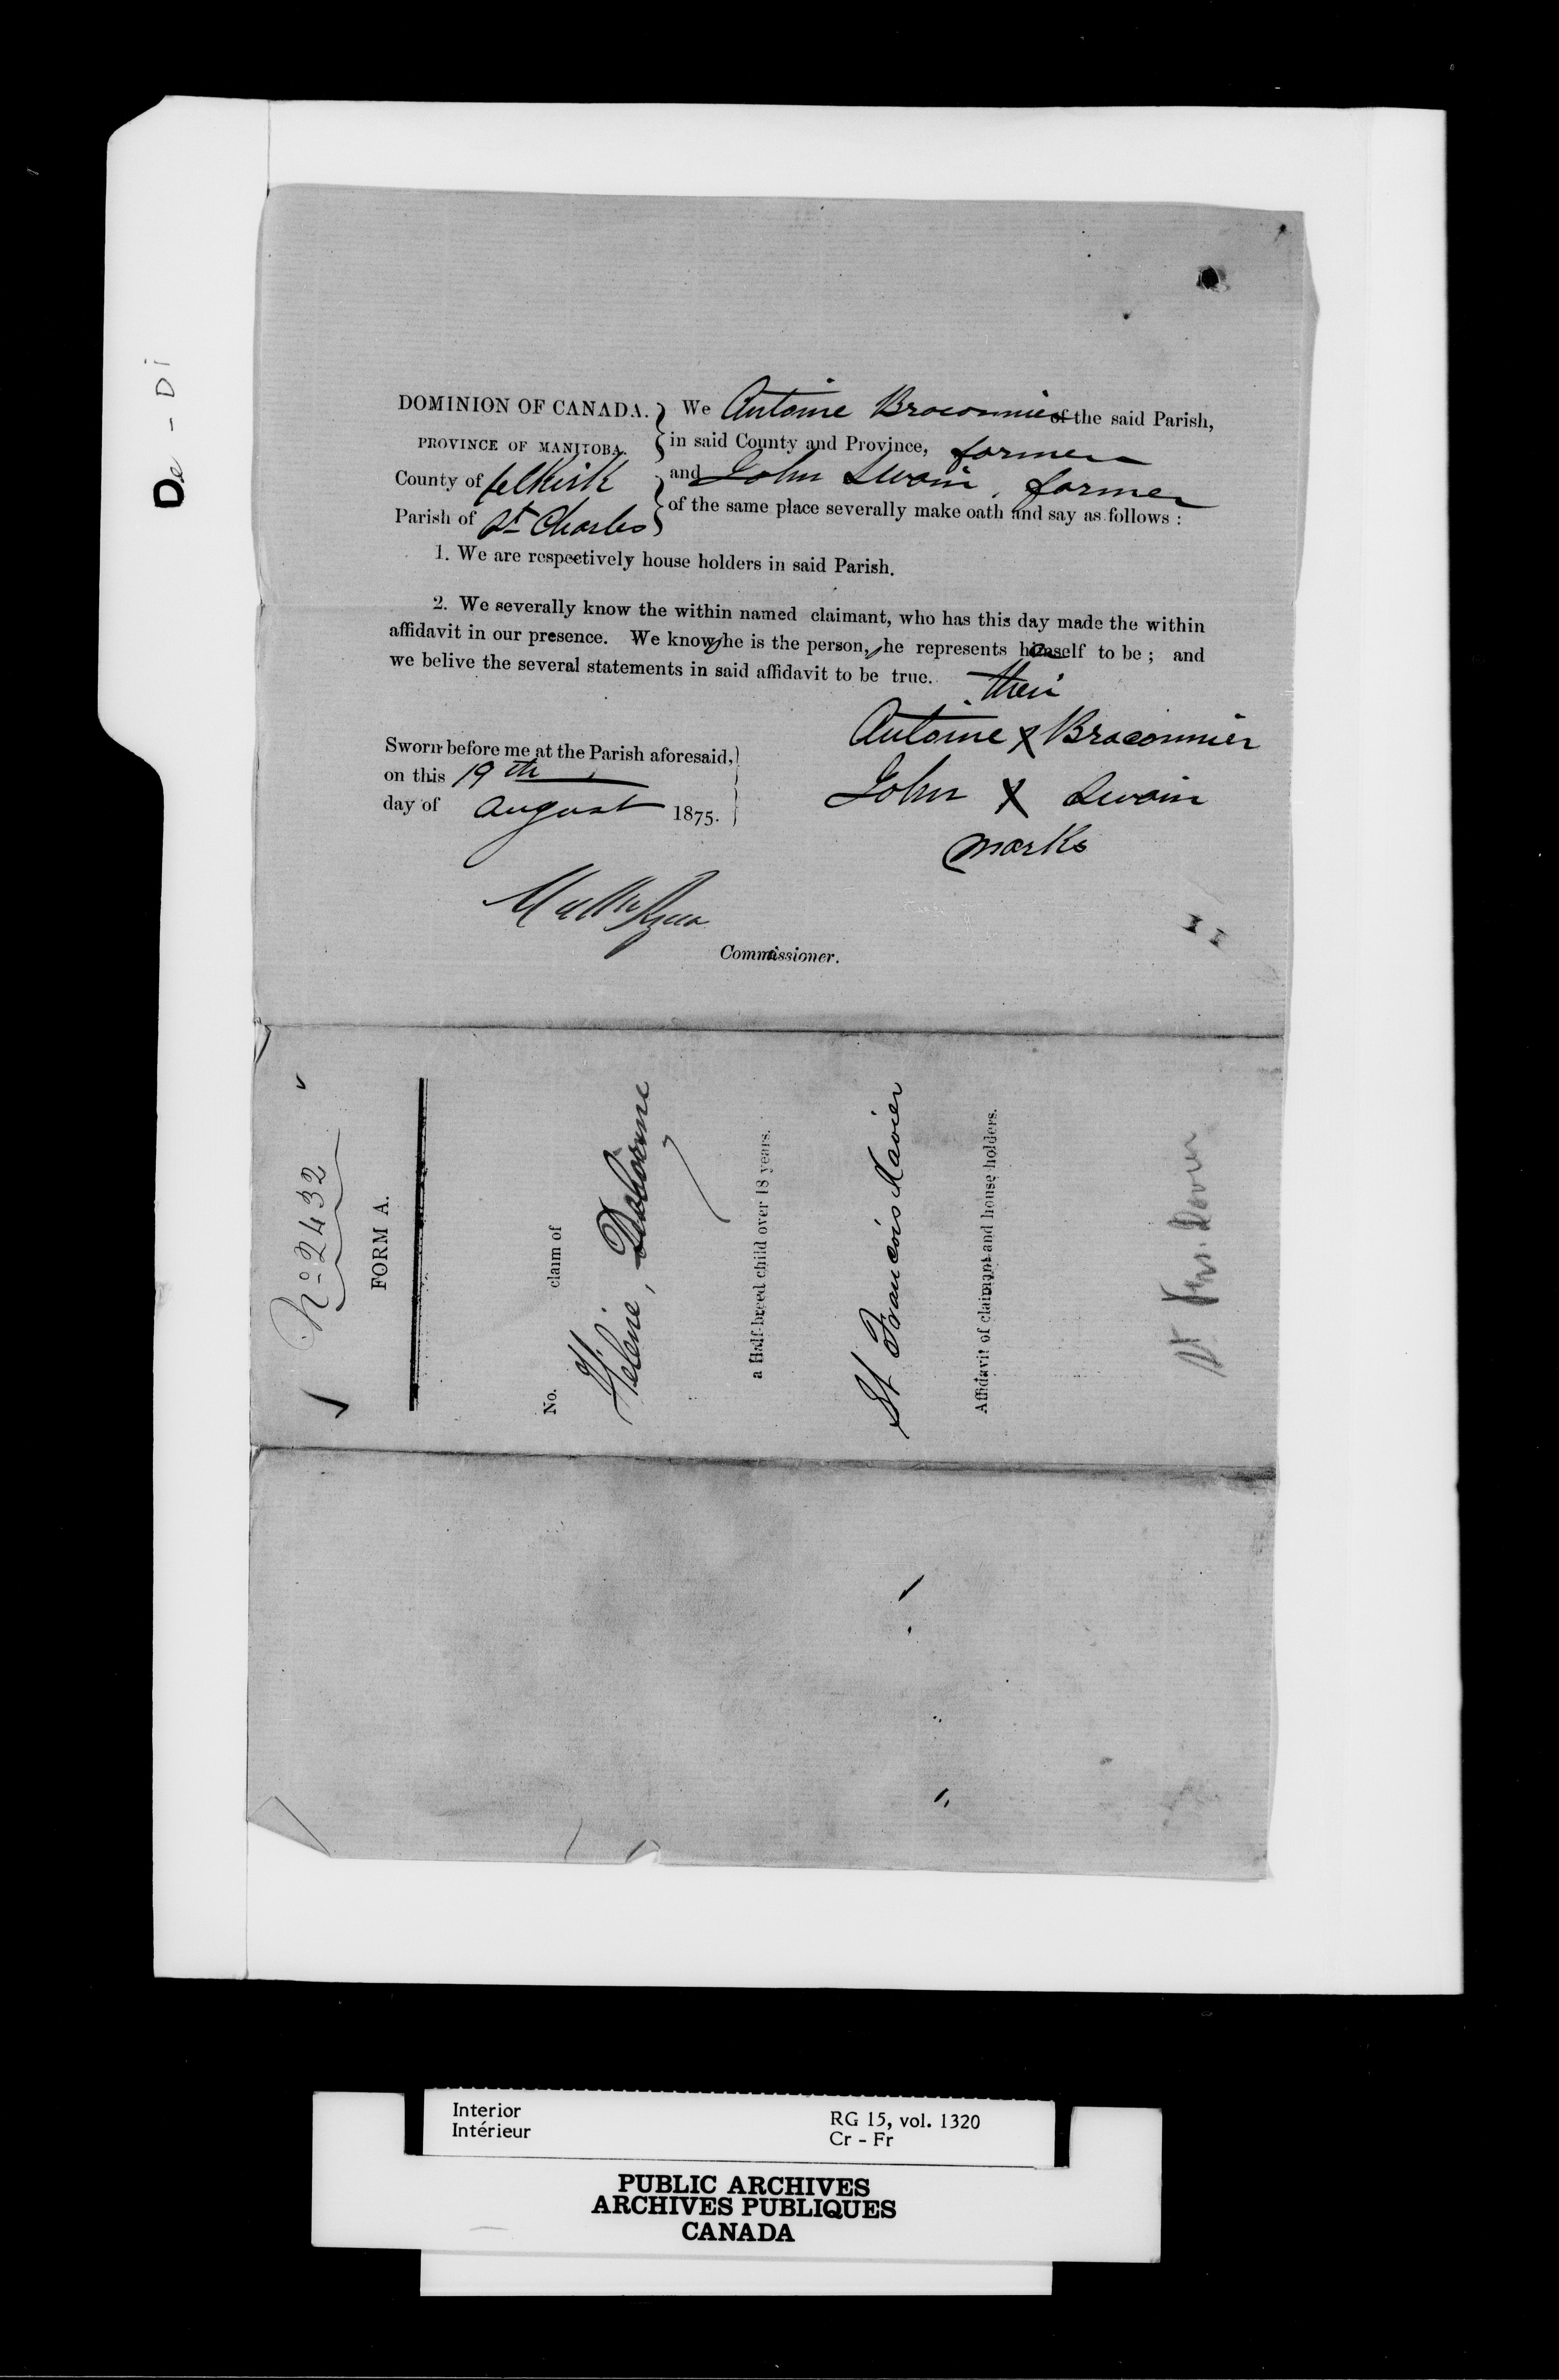 De - Di
DOMINION OF CANADA.
PROVINCE OF MANITOBA.
County of Selkirk
Parish of St Charles
We Antoine Braconnier of the said Parish,
in said County and Province, farmer
and John Swain, farmer
of the same place severally make oath and say as follows :
1. We are respectively house holders in said Parish.
2. We severally know the within named claimant, who has this day made the within
affidavit in our presence. We know she is the person, she represents herself to be ; and
we belive the several statements in said affidavit to be true.
their
Antoine X Braconnier
John X Swain
marks
Sworn before me at the Parish aforesaid,
on this 19th
day of August 1875.
Commissioner.
No 2432
FORM A.
No. claim of
Hélène,
a Half-breed child over 18 years.
St François Xavier
Affidavit of claimant and house holders.
Interior
Intérieur
RG 15, vol. 1320
Cr - Fr
PUBLIC ARCHIVES
ARCHIVES PUBLIQUES
CANADA